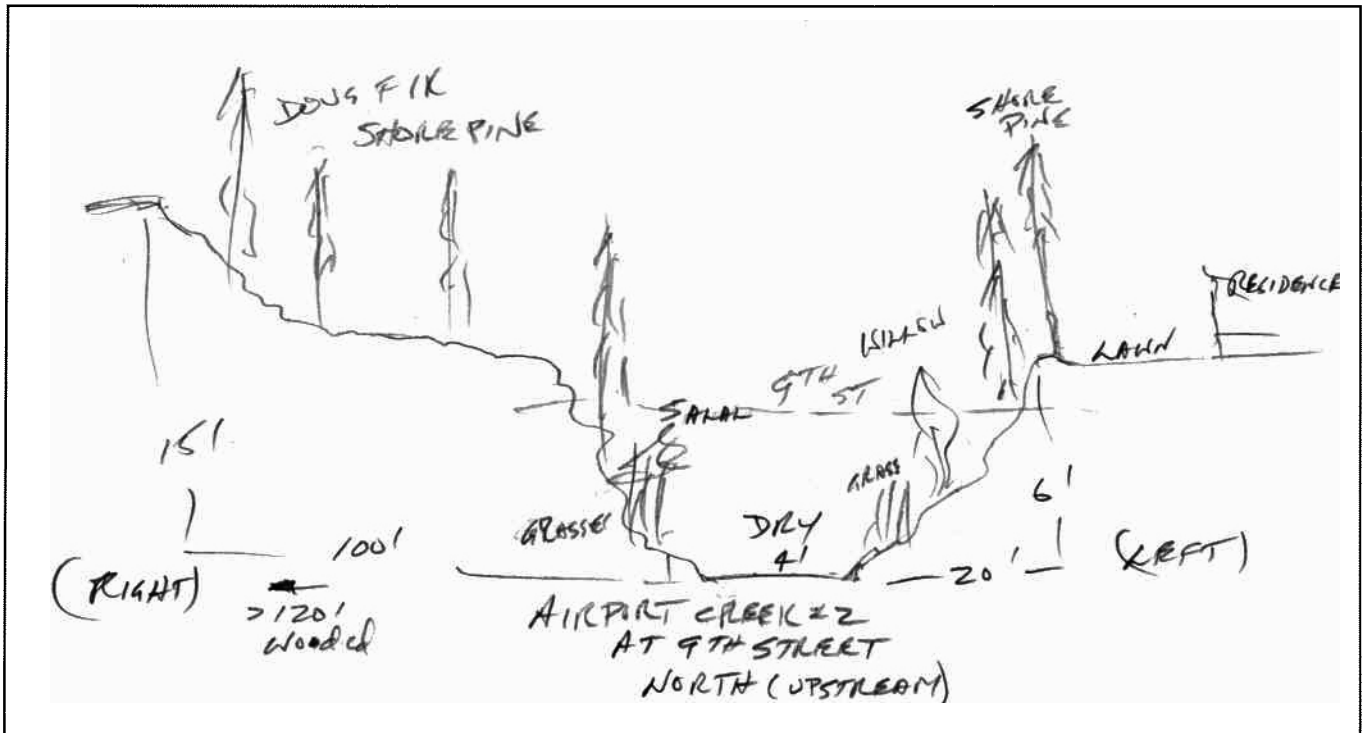 DOUG FIR
SHORE PINE
SHORE
PINE
RESIDENCE
WILLOW
LAWN
9TH
ST
SALAL
15'
GRASS
6'
GRASSES
DRY
4'
100'
20'
(RIGHT)
(LEFT)
>120'
Wooded
AIRPORT CREEK #2
AT 9TH STREET
NORTH (UPSTREAM)